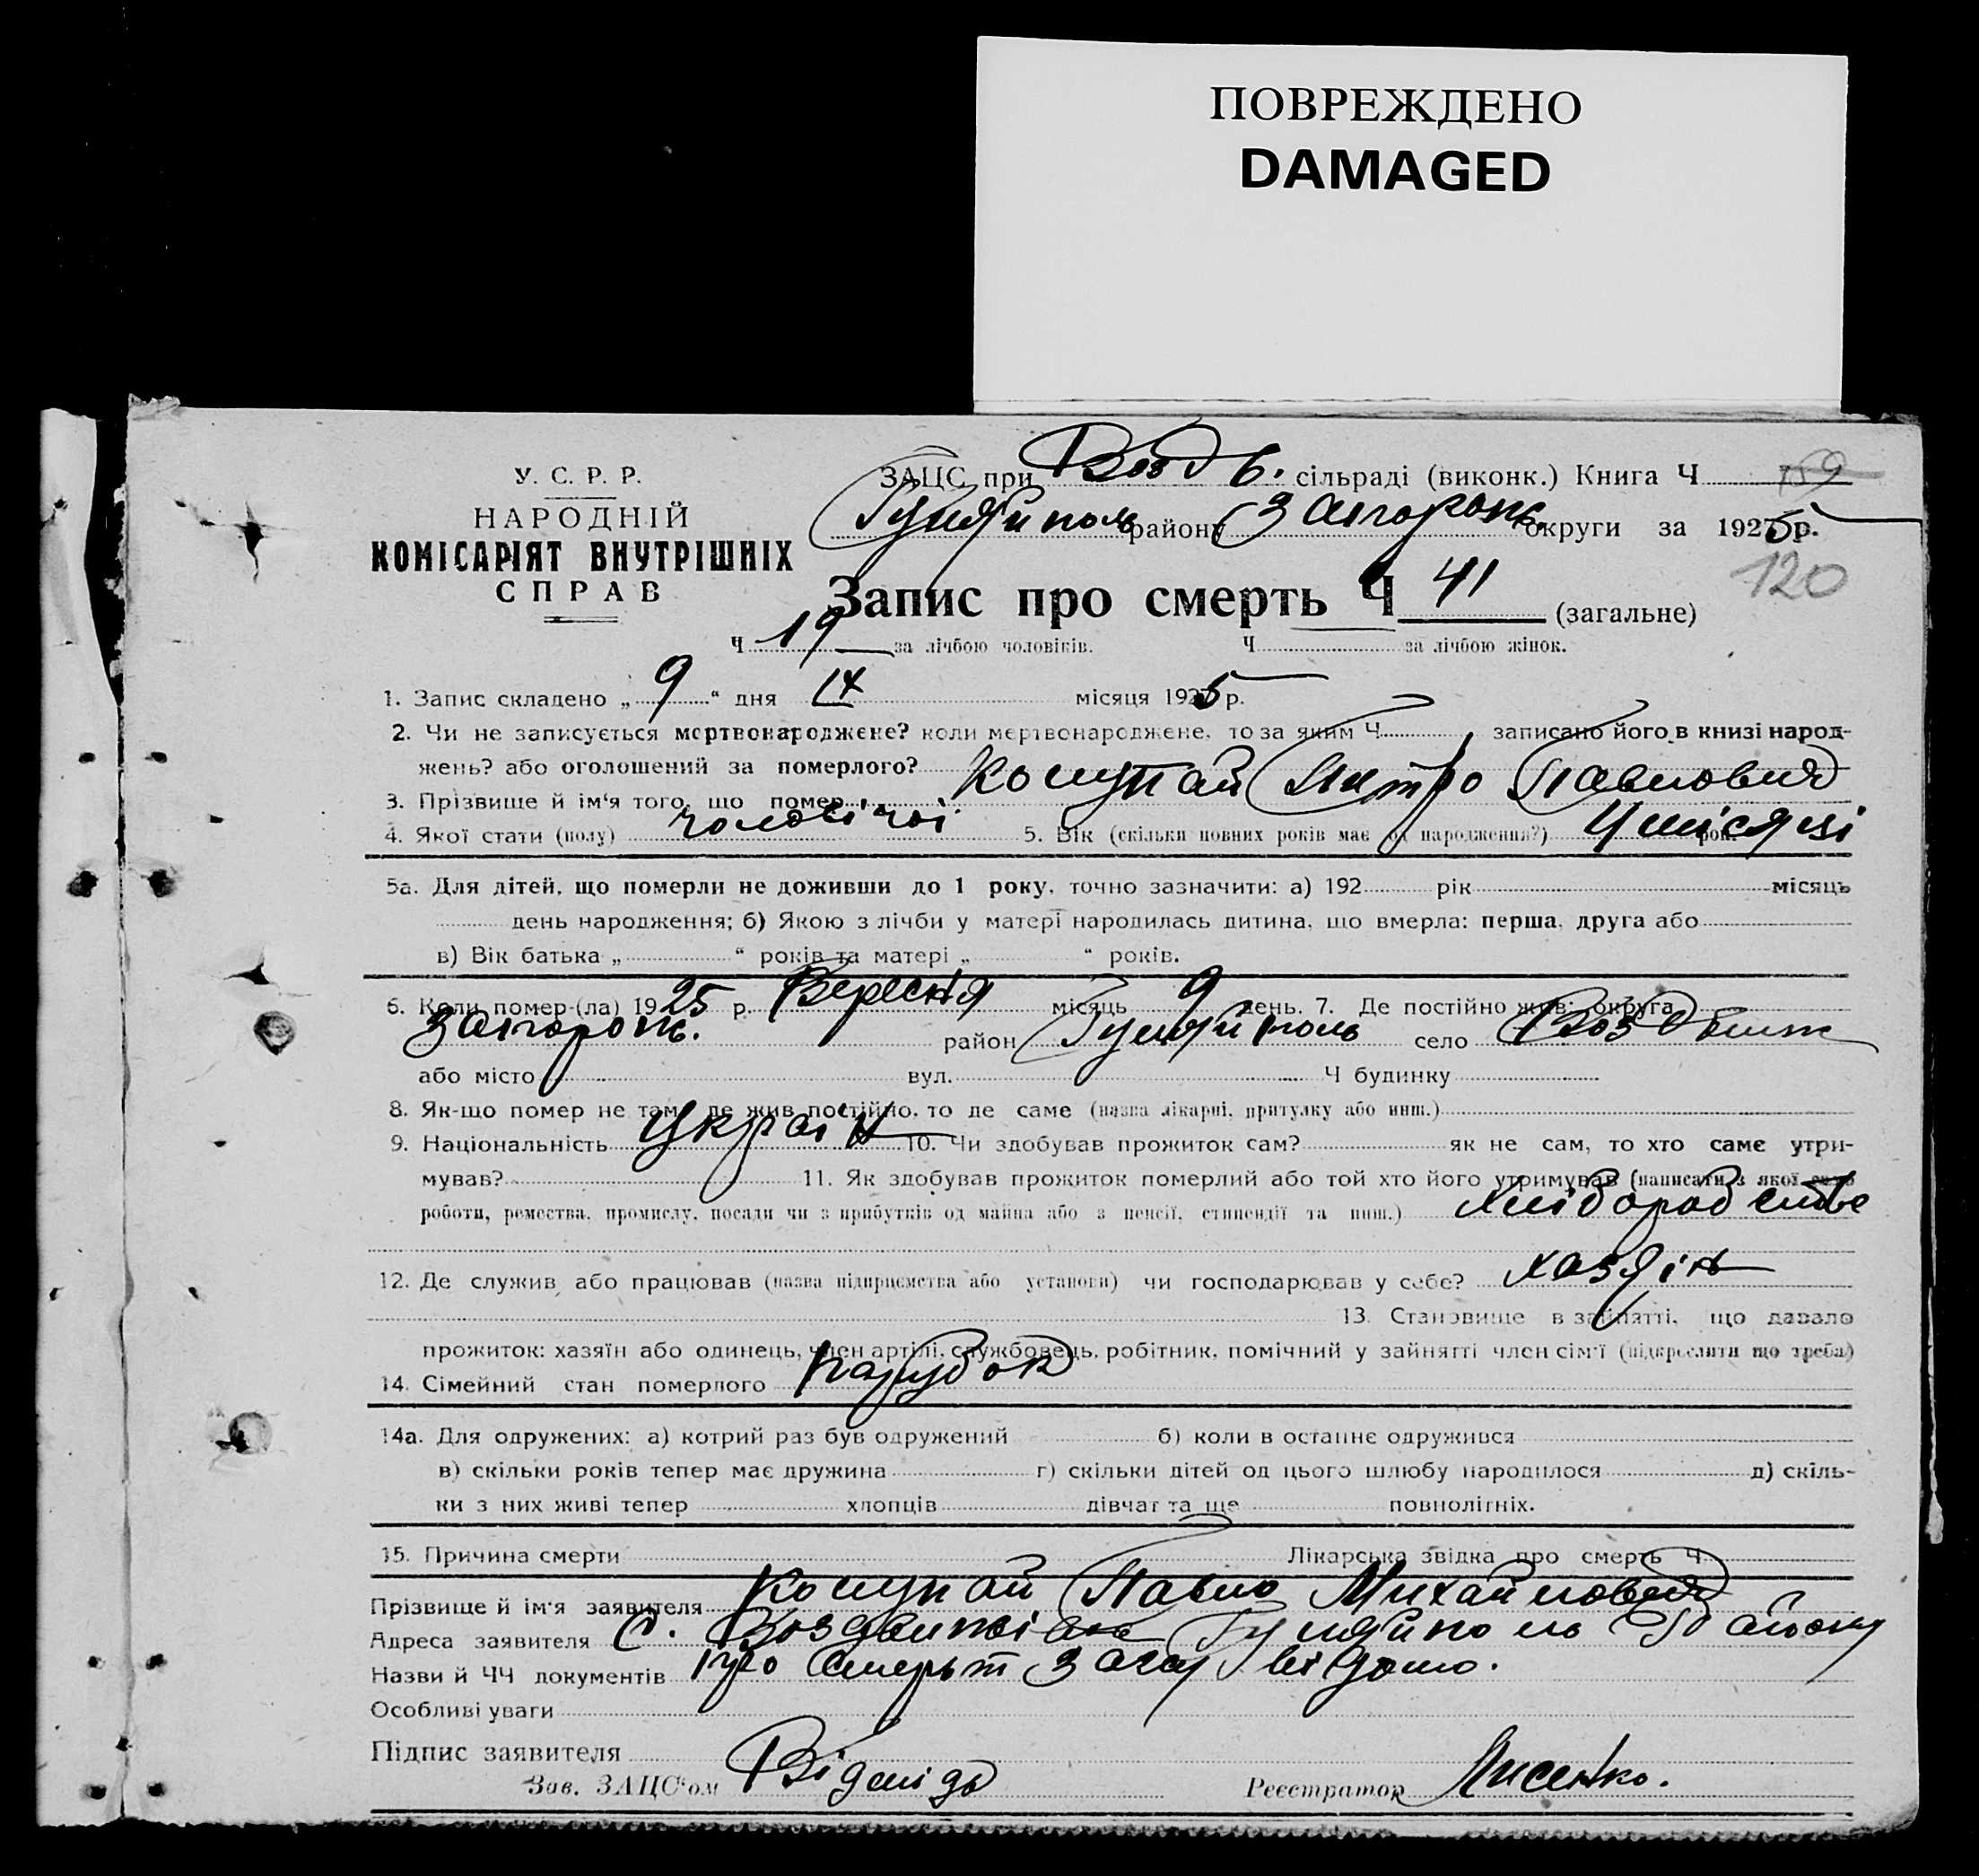 ПОВРЕЖДЕНО
DAMAGED
У. С. Р. Р.
НАРОДНІЙ
КОМІСАРІЯТ ВНУТРІШНІХ
СПРАВ
ЗАЦС при Воздв. сільраді (виконк.) Книга Ч 159
Гуляйполь району Запорож. округи за 1925 р.
120
Запис про смерть Ч 41 (загальне)
Ч 19 за лічбою чоловіків. Ч за лічбою жінок.
1. Запис складено „ 9 “ дня IX місяця 1925 р.
2. Чи не записується мертвонароджене? коли мертвонароджене, то за яким Ч , записано його в книзі народ-
жень? або оголошений за померлого?
3. Прізвище й ім'я того, що помер Дмитро Павлович
4. Якої стати (полу) чоловічої 5. Вік (скільки повних років має од народження?) 4 місяці рок.
5а. Для дітей, що померли не доживши до 1 року, точно зазначити: а) 192 рік місяць
день народження; б) Якою з лічби у матері народилась дитина, що вмерла: перша, друга або
в) Вік батька „ “ років та матері „ “ років.
6. Коли помер-(ла) 1925 р. Вересня місяць 9 день. 7. Де постійно жив: округа
Запорож. район Гуляйполь село Воздвиж
або місто вул. Ч будинку
8. Як-що помер не там, де жив постійно, то де саме (назва лікарні, притулку або инш.)
9. Національність Україн 10. Чи здобував прожиток сам? як не сам, то хто саме утри-
мував? 11. Як здобував прожиток померлий або той хто його утримував (написати з якої саме
роботи, ремества, промислу, посади чи з прибутків од майна або з пенсії, стипендії та инш.) Хліборобство
12. Де служив або працював (назва підприємства або установи) чи господарював у себе? хазяїн
13. Становище в зайнятті, що давало
прожиток: хазяїн або одинець, член артілі, службовець, робітник, помічний у зайнятті член сім'ї (підкреслити що треба)
14. Сімейний стан померлого парубок
14а. Для одружених: а) котрий раз був одружений б) коли в останнє одружився
в) скільки років тепер має дружина г) скільки дітей од цього шлюбу народилося д) скіль-
ки з них живі тепер хлопців дівчат та ще повнолітніх.
15. Причина смерти Лікарська звідка про смерть Ч
Прізвище й ім'я заявителя Павло Михайлович
Адреса заявителя С. Воздвижівка Гуляйполь Району
Назви й ЧЧ документів про смерть
Особливі уваги
Підпис заявителя
Зав. ЗАЦС'ом Реєстратор Лисенко.